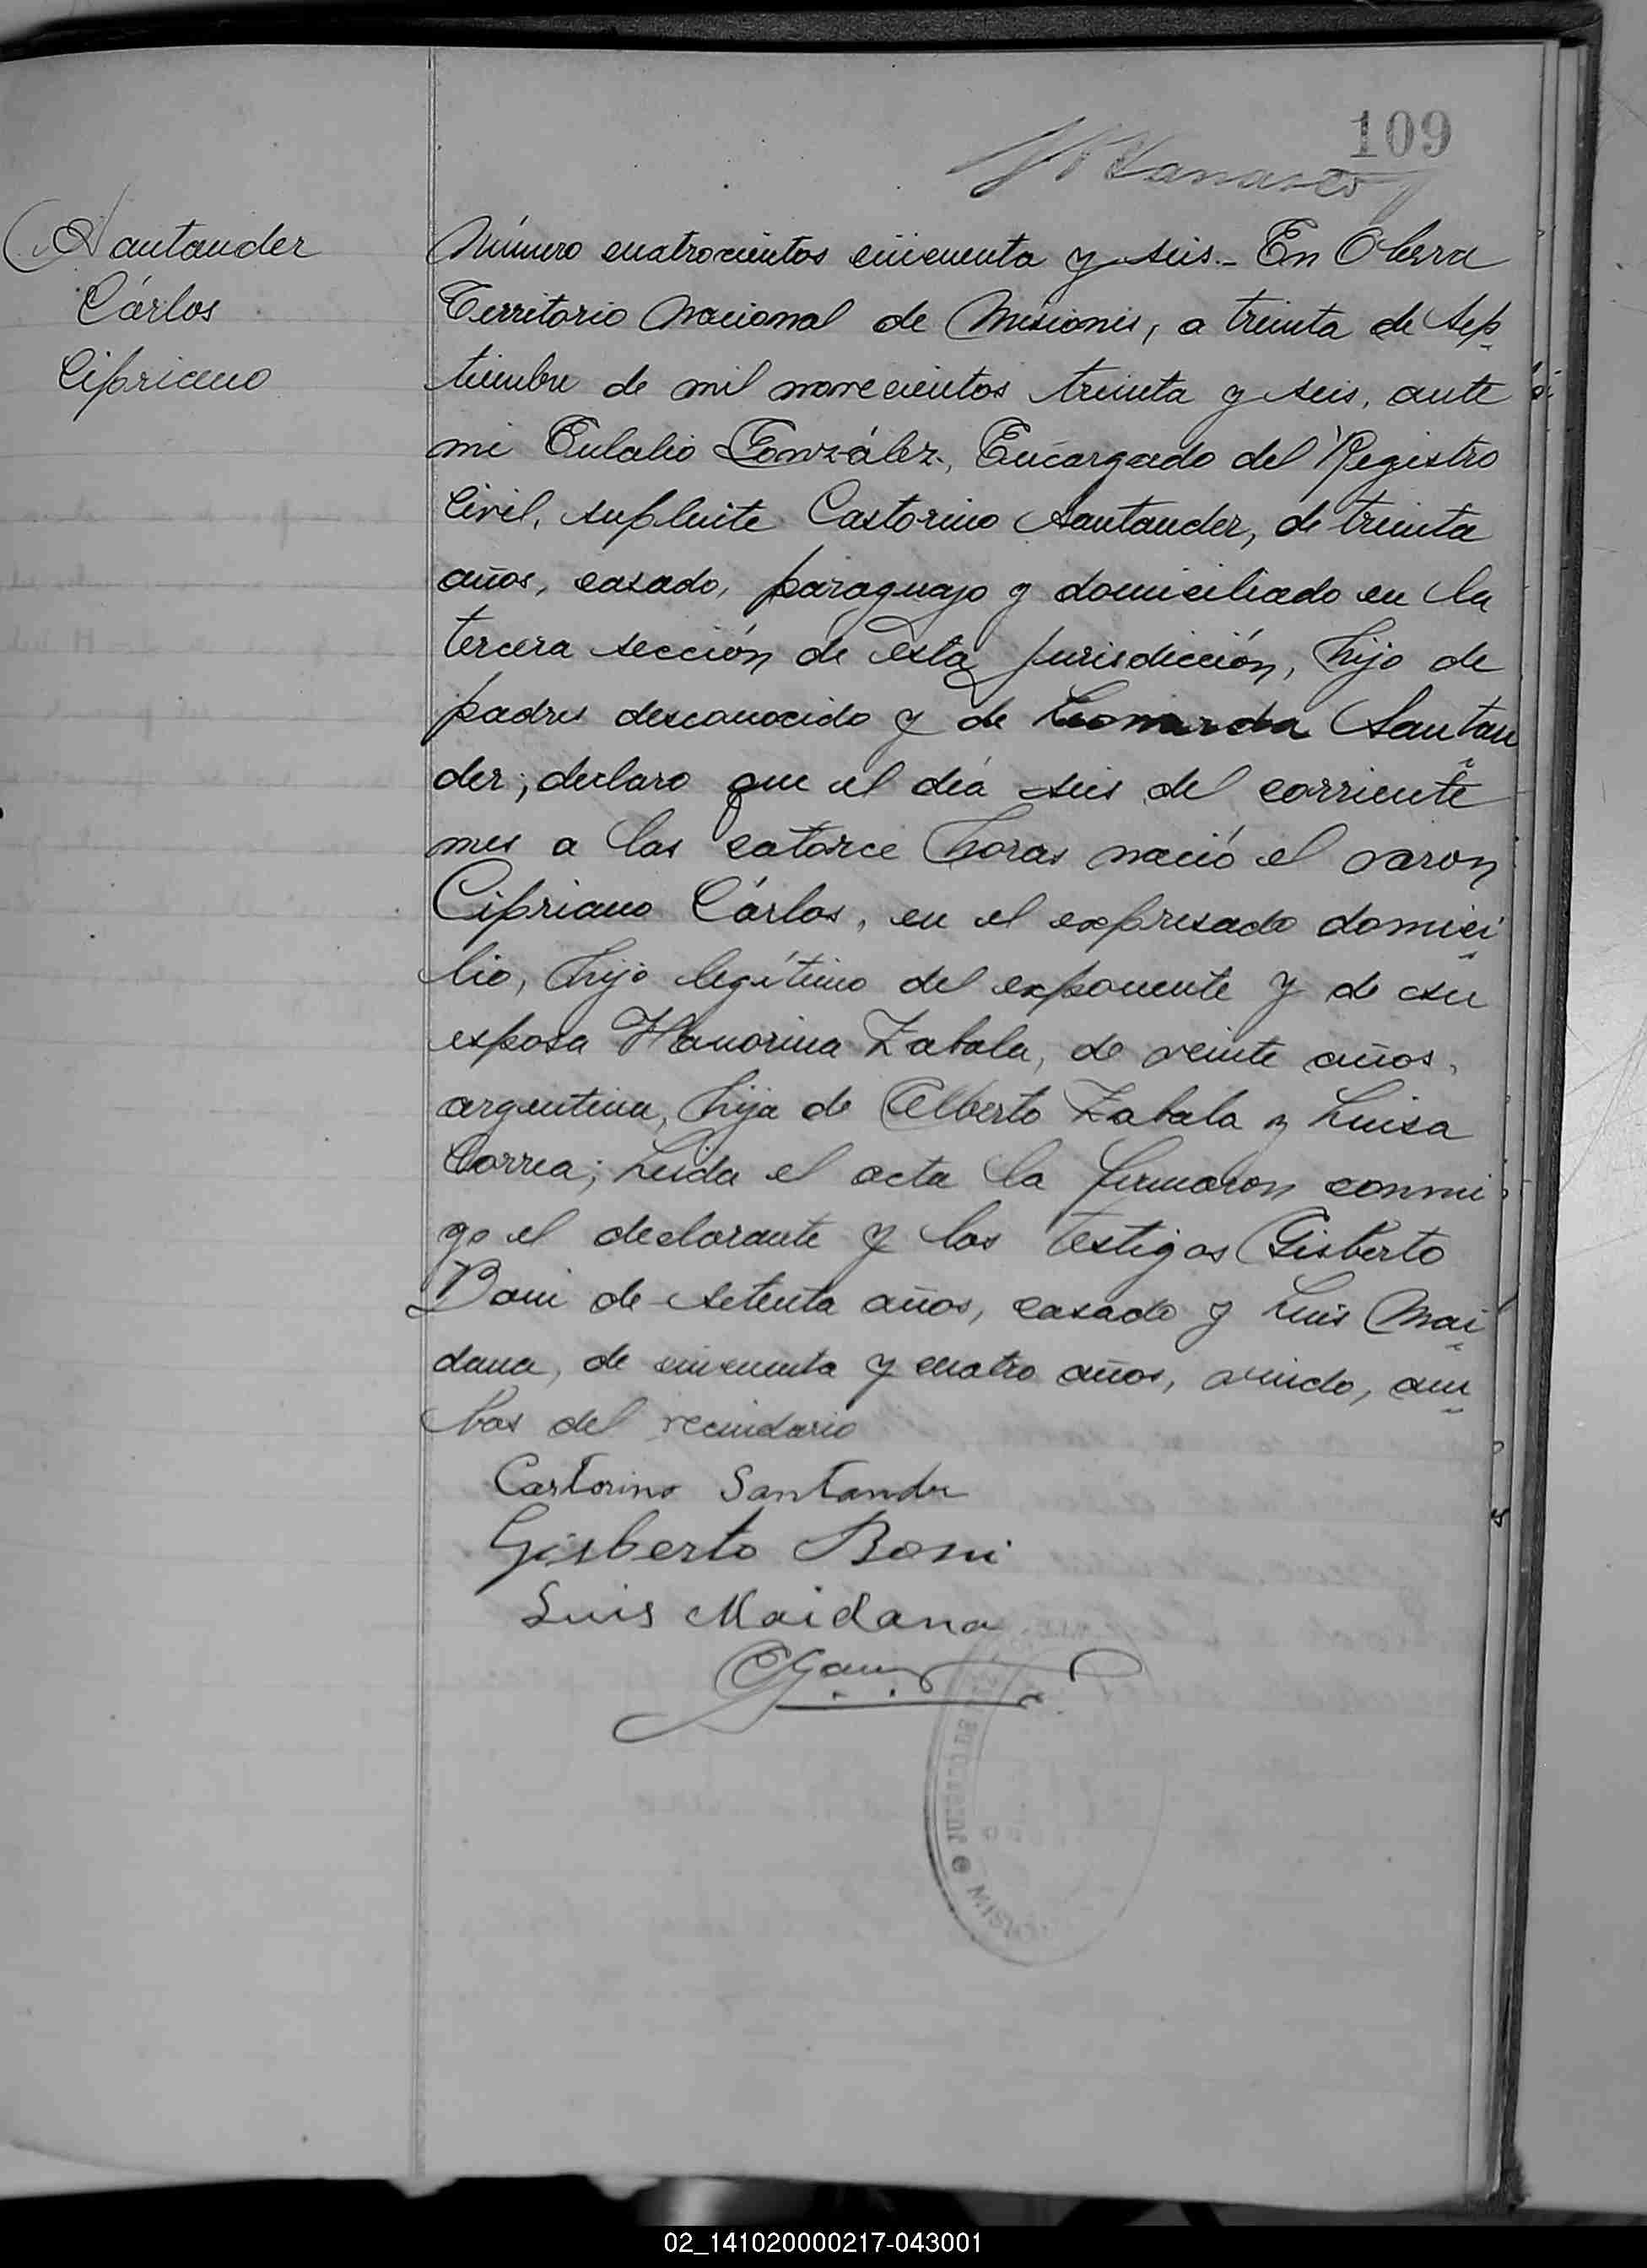 109
Santander
Cárlos
Cipriano
Número cuatrocientos cincuenta y seis.- En Oberá
Territorio Nacional de Misiones, a treinta de Sep
tiembre de mil novecientos treinta y seis, ante
mi Eulalio González, Encargado del Registro
Civil, suplente Castorino Santander, de treinta
años, casado, paraguayo y domiciliado en la
tercera sección de esta jurisdicción, hijo de
padre desconocido y de Leonarda Santan
der; declaro que el día seis del corriente
mes a las catorce horas nació el varon
Cipriano Cárlos, en el expresado domici
lio, hijo legítimo del exponente y de su
esposa Honorina Zabala, de veinte años,
argentina, hija de Alberto Zabala y Luisa
Correa; Leida el acta la firmaron conmi
go el declarante y los testigos Gisberto
Boni de setenta años, casado y Luis Mai
dana, de cincuenta y cuatro años, viudo, am
bos del vecindario
Castorino Santander
Gisberto Boni
Luis Maidana
02_141020000217-043001